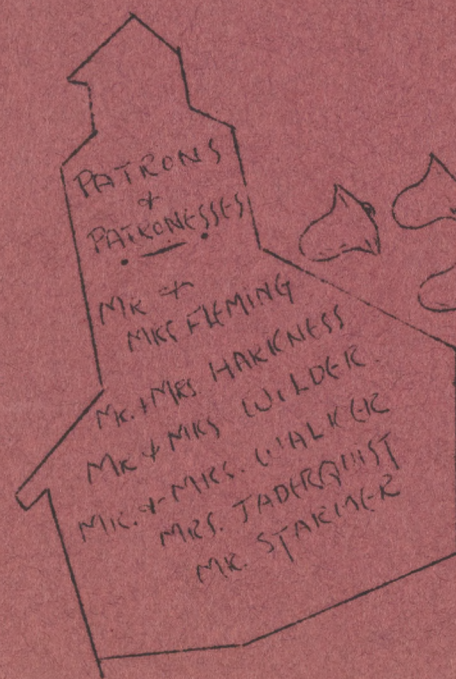 PATRONS
&
PATRONESSES
MR &
MRS FLEMING
MR. & MRS. HARKNESS
MR & MRS WILDER.
MR. & MRS. WALKER
MRS. JADERQUIST
MR. STARMER